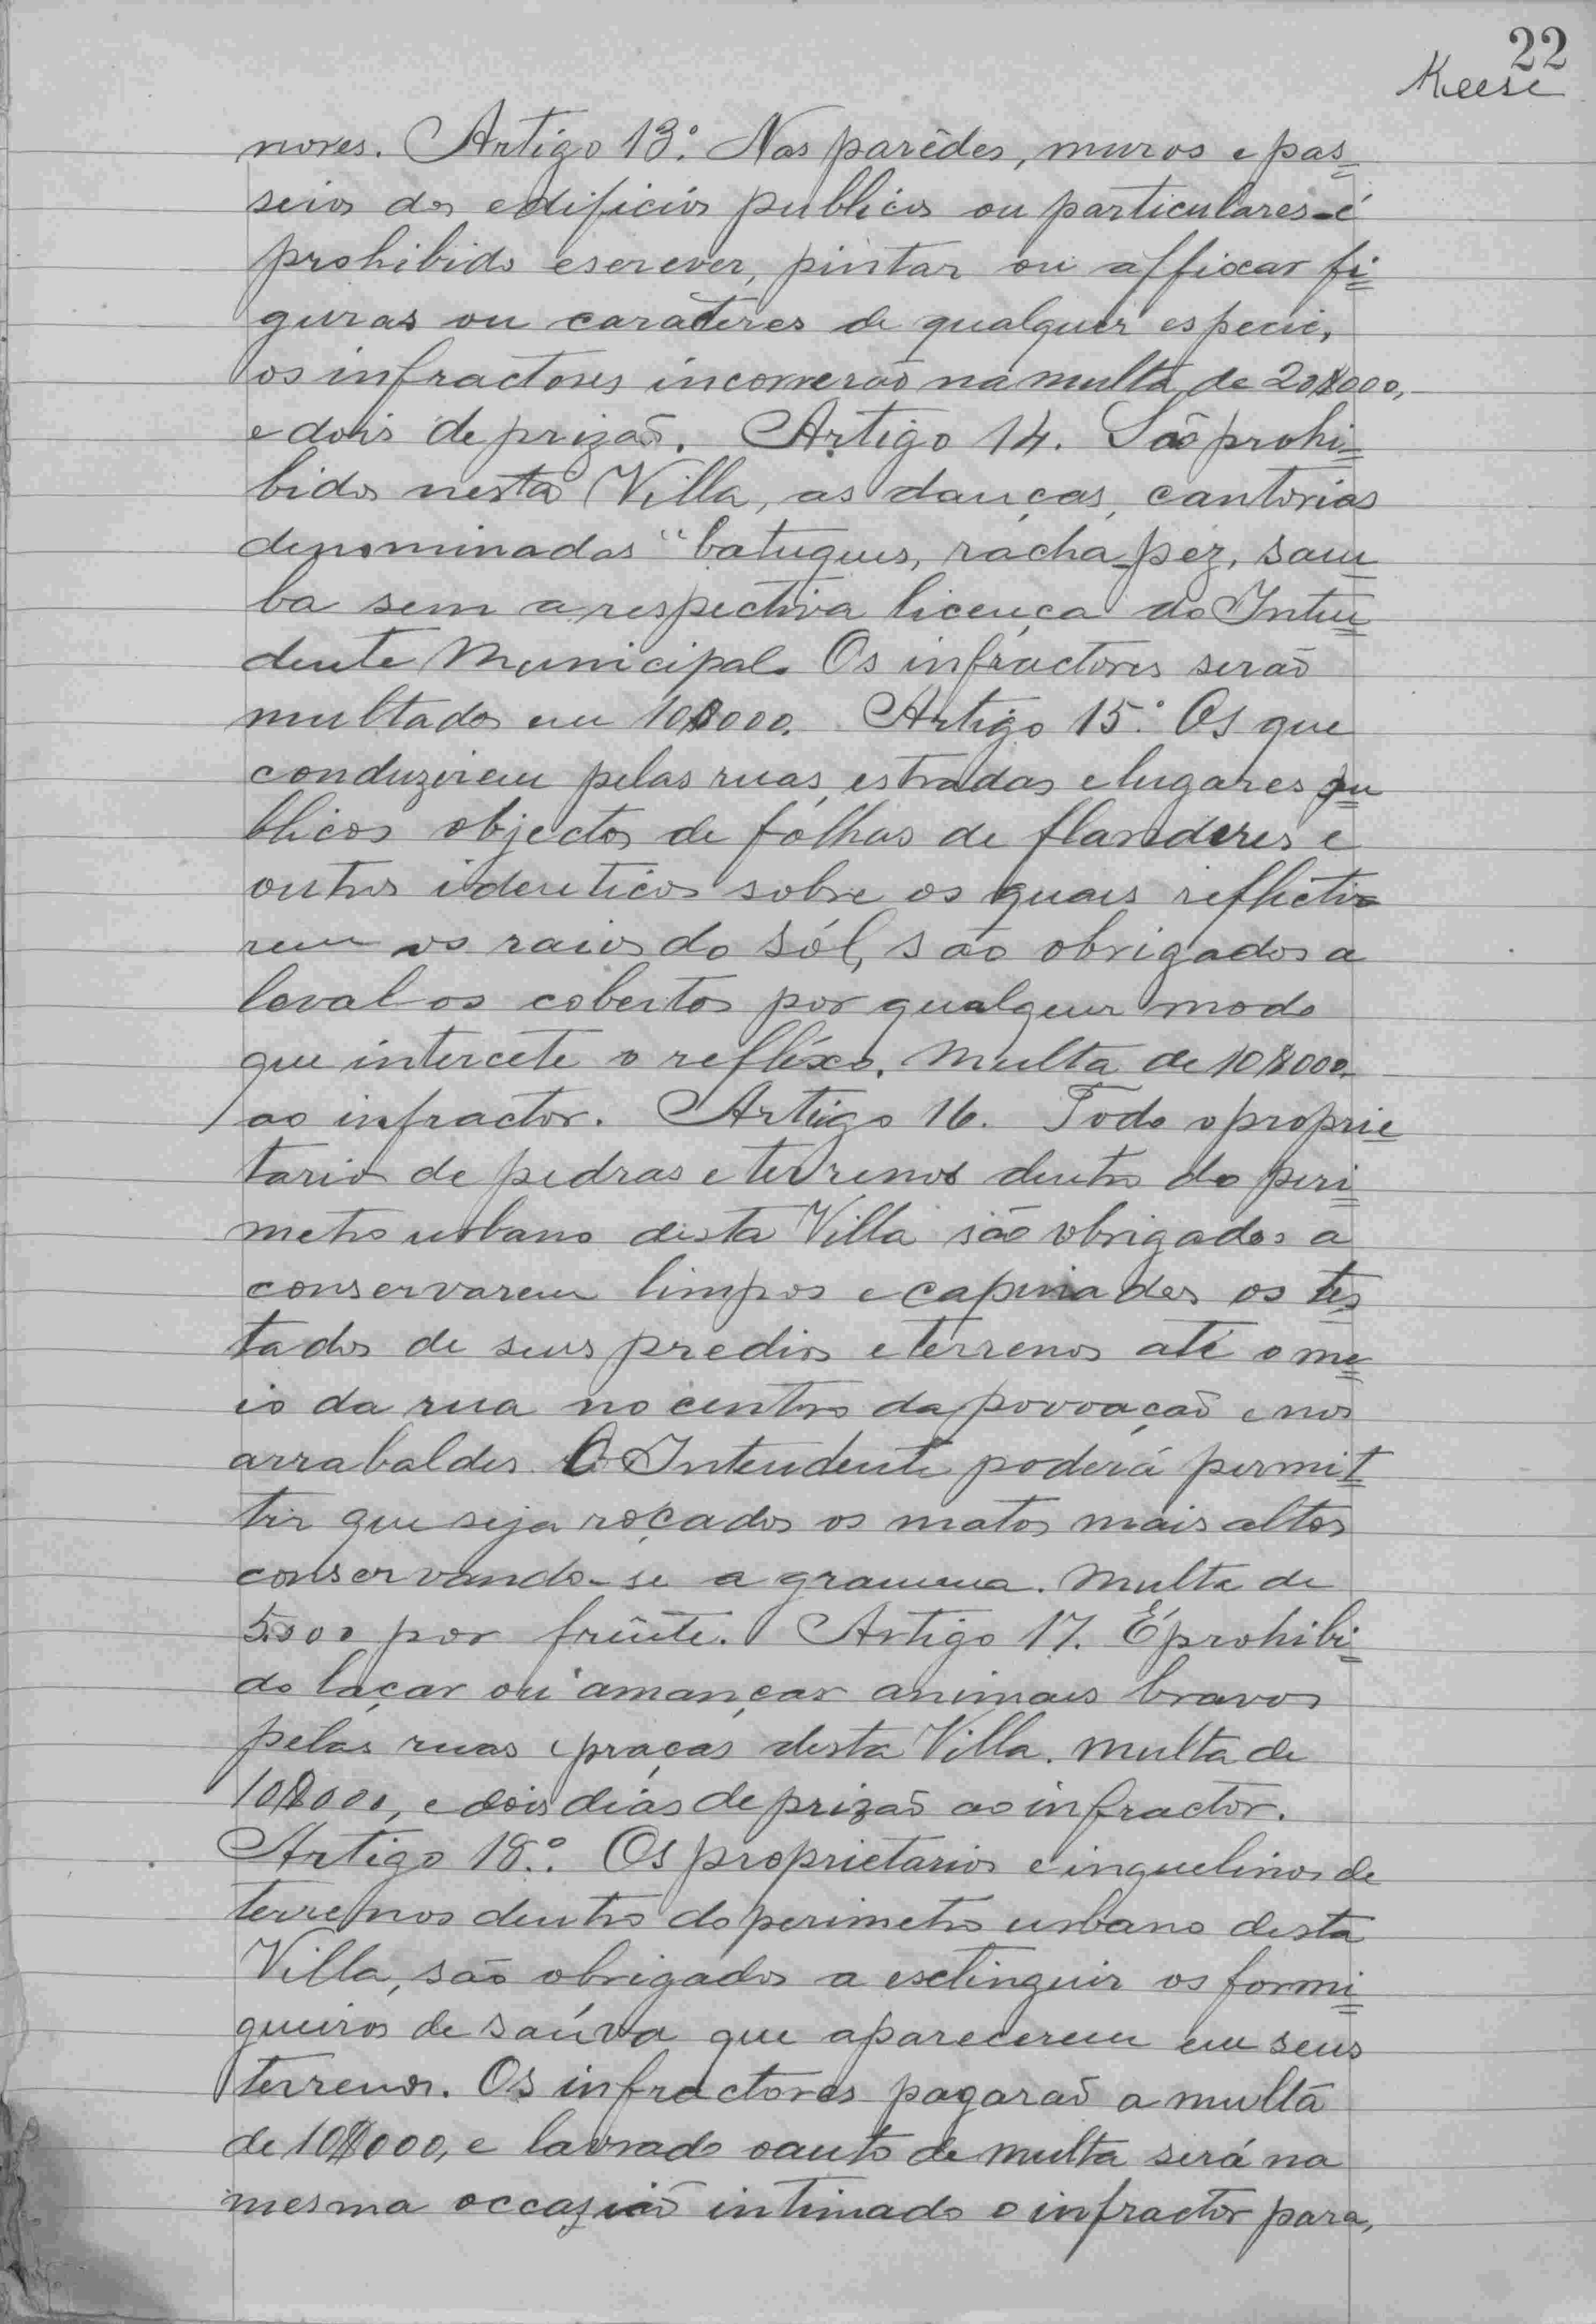 22
Keese
nores. Artigo 13º. Nas parêdes, muros e pas=
seios dos edificios publicos ou particulares é
prohibido escrever, pintar ou affixar fi=
guras ou carateres de qualquer especie,
os infractores incorrerão na multa de 20$000,
e dois de prizão. Artigo 14. São prohi=
bidos nesta Villa, as danças, cantorias
denominadas "batuques, racha-pez, sam=
ba sem a respectiva licença do Inten=
dente Municipal. Os infractores serão
multados em 10$000. Artigo 15º. Os que
conduzirem pelas ruas, estradas e lugares pu=
blicos objectos de fólhas de flanderes e
outros identicos sobre os quais reflicti=
rem os raios do sól, são obrigados a
leval-os cobertos por qualquer modo
que intercete o refléxo. Multa de 10$000
ao infractor. Artigo 16. Todo o proprie=
tario de pedras e terrenos dentro do peri=
metro urbano desta Villa são obrigados a
conservarem limpos e capinados os tes=
tados de seus predios e terrenos até o me=
io da rua no centro da povoação e nos
arrabaldes. O Intendente poderá permit=
tir que seja roçados os matos mais altos
conservando-se a gramma. Multa de
5.000 por frente. Artigo 17. É prohibi=
do laçar ou amançar animais bravos
pelas ruas e praças desta Villa. Multa de
10$000, e dois dias de prizão ao infractor.
Artigo 18º. Os proprietarios e inquelinos de
terrenos dentro do perimetro urbano desta
Villa, são obrigados a extinguir os formi=
gueiros de saúva que aparecerem em seus
terrenos. Os infractores pagarão a multa
de 10$000, e lavrado o auto de multa será na
mesma occazião intimado o infractor para,